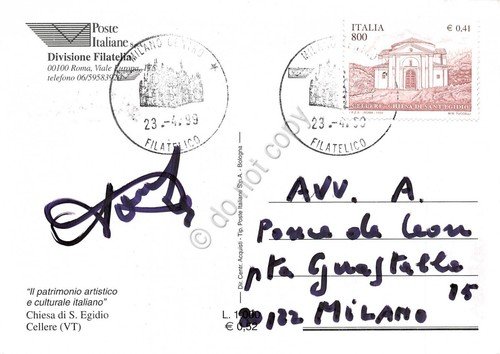 Poste
Italiane
Divisione Filatelia
00100 Roma, Viale Europa,
telefono 06/59583920
MILANO CENTRO
23.-4.99
FILATELICO
MILANO CENTRO
23.-4.99
FILATELICO
ITALIA
800
€ 0,41
CELLERE - CHIESA DI SANT'EGIDIO
do not copy
Dir. Centr. Acquisti - Tip. Poste Italiane S.p.A. - Bologna
AVV. A.
Ponce de Leon
pta Guastalla
15
20122 MILANO
"Il patrimonio artistico
e culturale italiano"
Chiesa di S. Egidio
Cellere (VT)
L. 1.000
€ 0,52